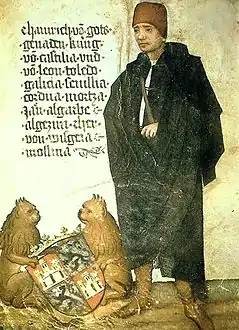 chainrich võ gots
genaden kung
võ castilia und
võ leon toledo
galicia sevillia
cordua mortza
Jan algarbe
algezira
von
mollina